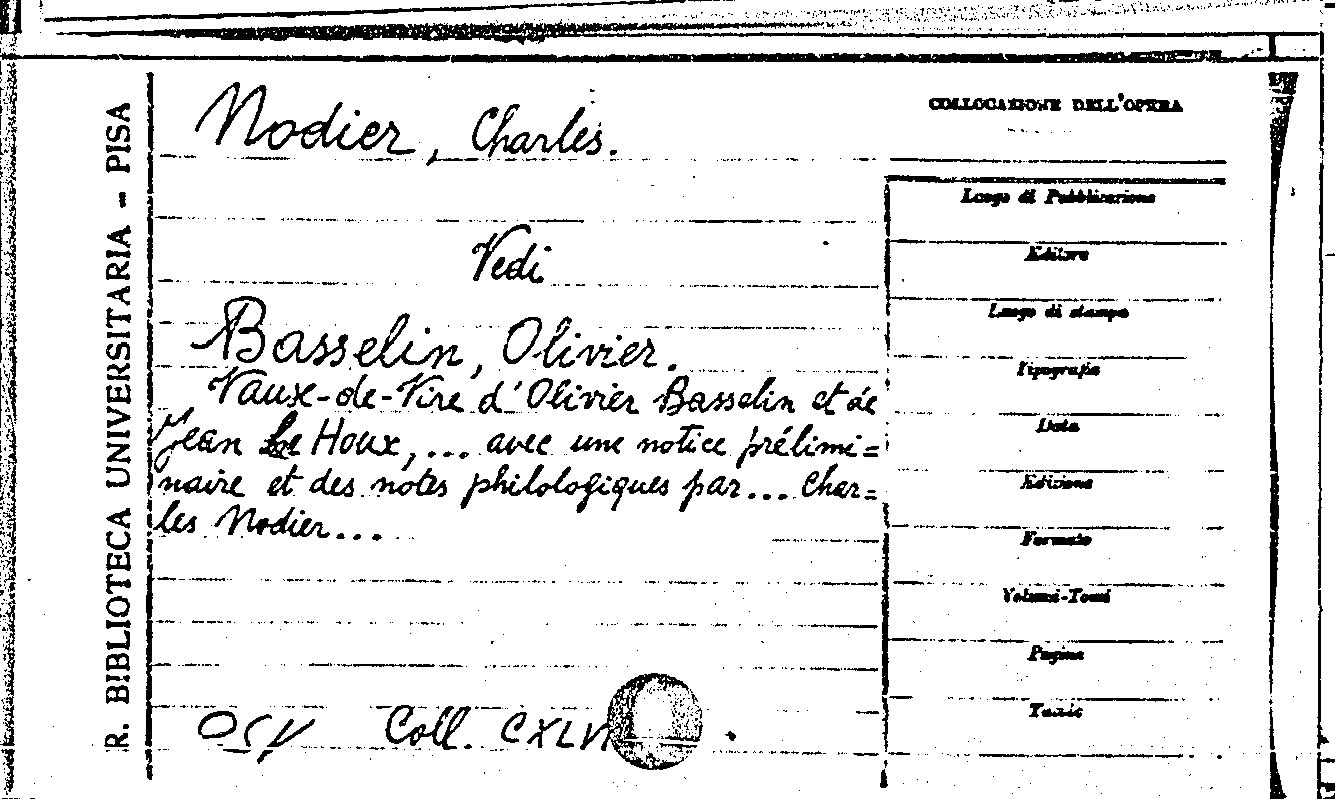 R. BIBLIOTECA UNIVERSITARIA – PISA
Nodier, Charles.
Vedi
Basselin, Olivier.
Vaux-de-Vire d'Olivier Basselin et de
Jean Le Houx,... avec une notice prélimi=
naire et des notes philologiques par... Char=
les Nodier...
Coll.
COLLOCAZIONE DELL'OPERA
Luogo di Pubblicazione
Editore
Luogo di stampa
Tipografia
Data
Edizione
Formato
Volumi-Tomi
Pagine
Tavole